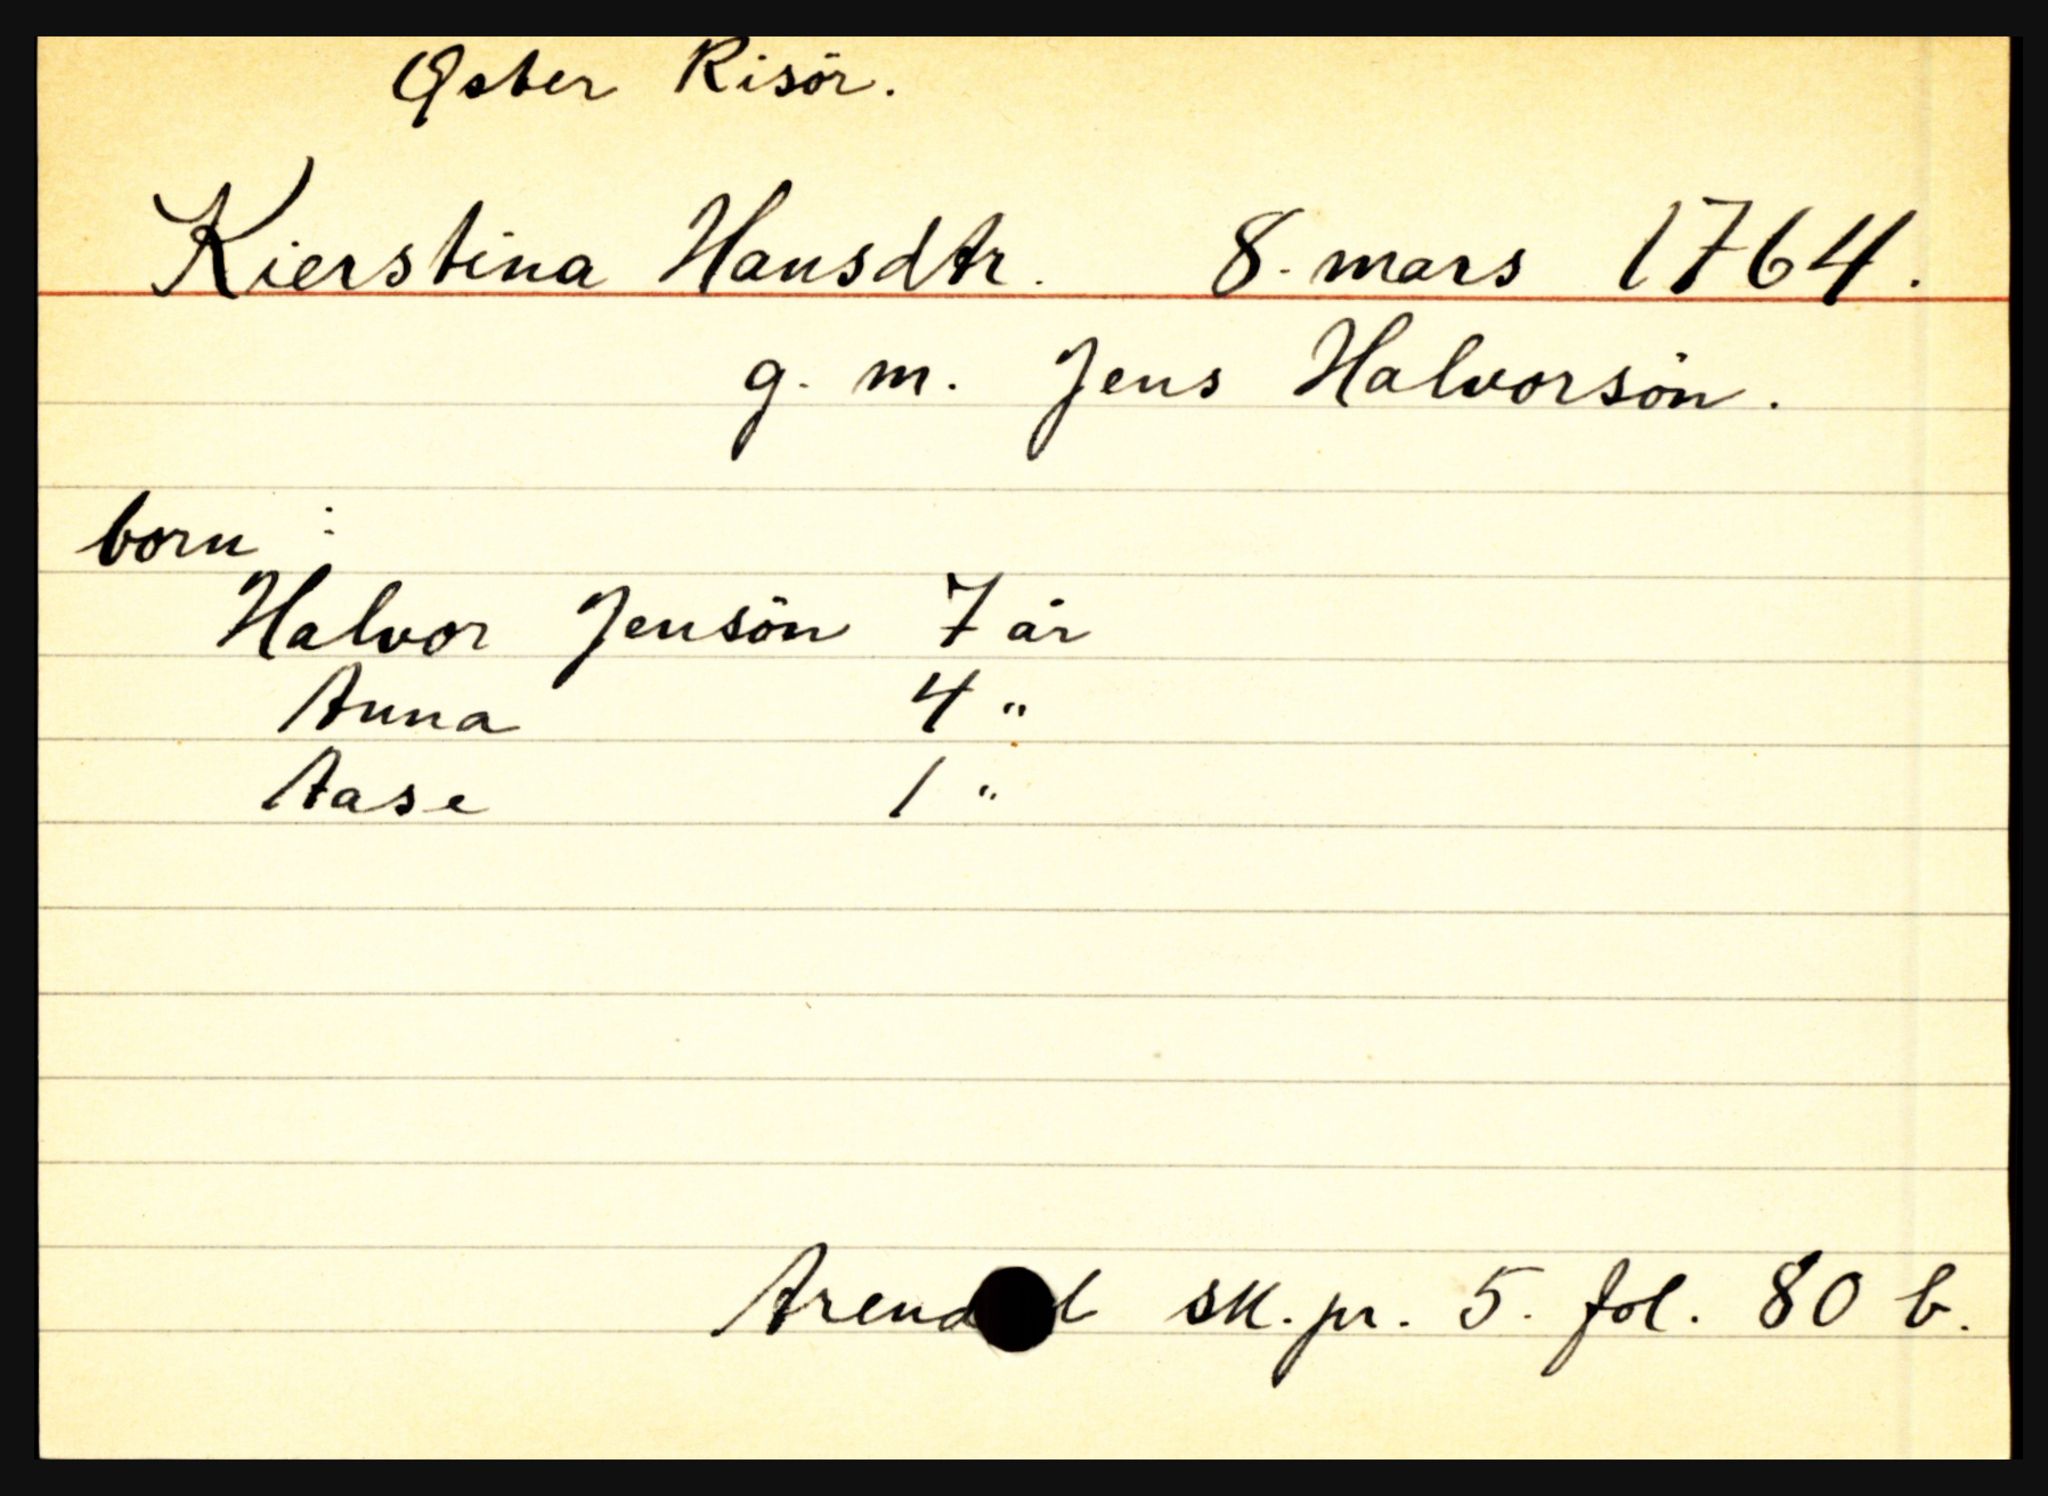 Øster Risör.
Kierstina Hansdtr. 8. mars 1764.
g. m. Jens Halvorsön.
born :
Halvor Jensön 7 år
Anna 4 "
Aase 1 "
Arend l sk. pr. 5. fol. 80 b.